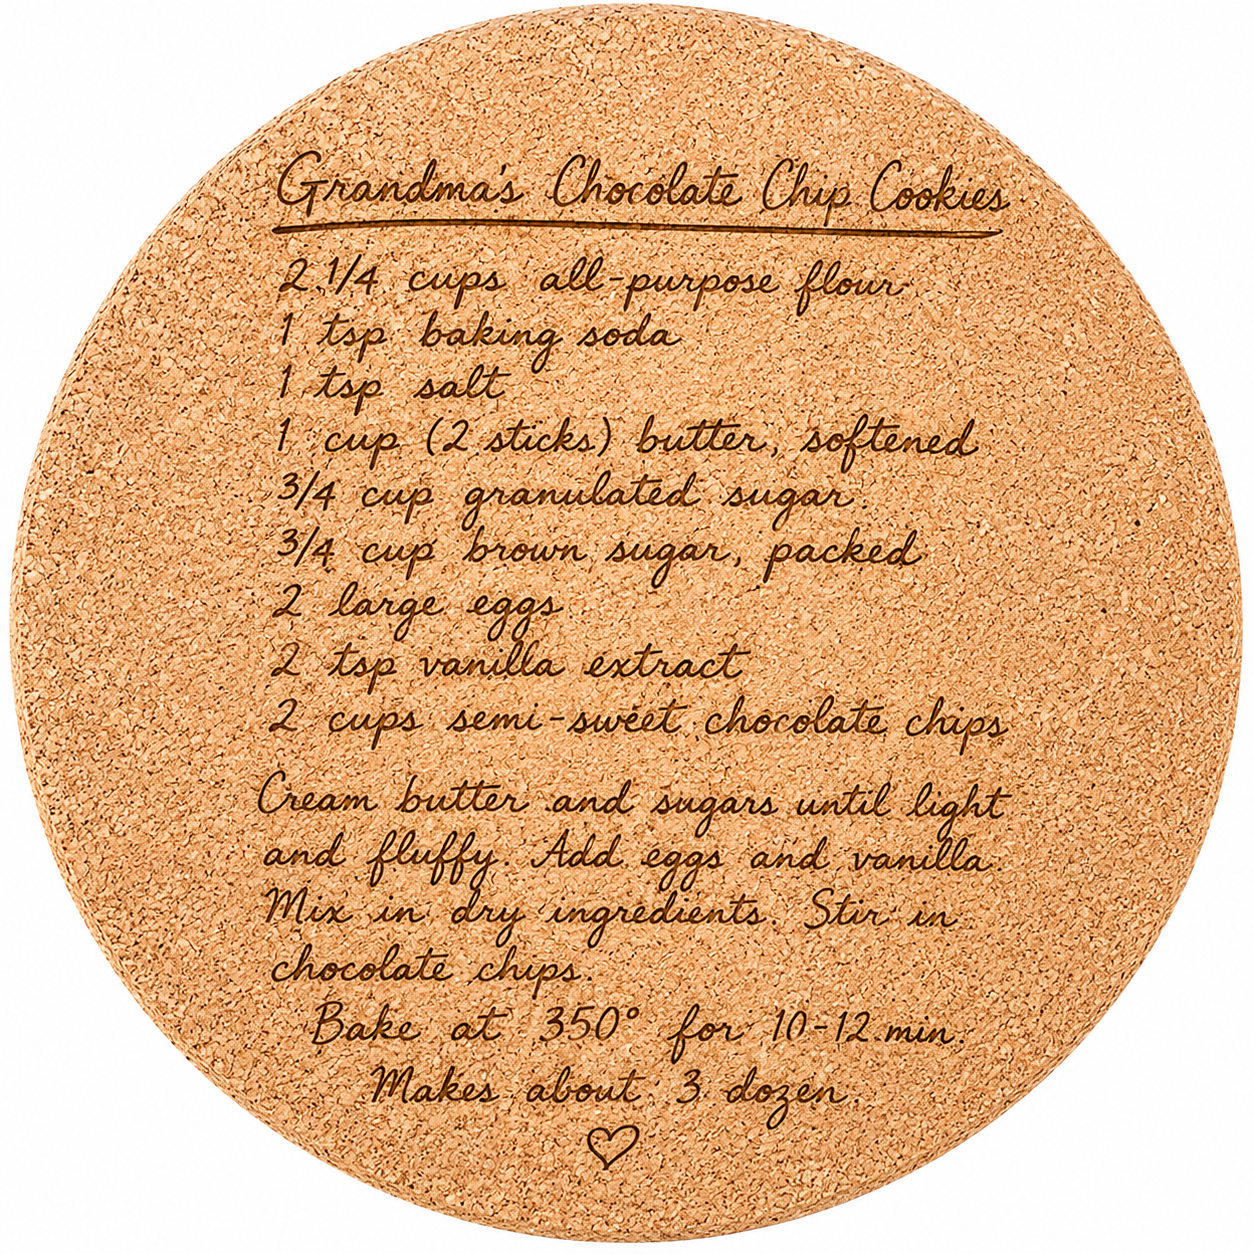 Grandma's Chocolate Chip Cookies
2 1/4 cups all-purpose flour
1 tsp baking soda
1 tsp salt
1 cup (2 sticks) butter, softened
3/4 cup granulated sugar
3/4 cup brown sugar, packed
2 large eggs
2 tsp vanilla extract
2 cups semi-sweet chocolate chips
Cream butter and sugars until light
and fluffy. Add eggs and vanilla.
Mix in dry ingredients. Stir in
chocolate chips.
Bake at 350° for 10-12 min.
Makes about 3 dozen.